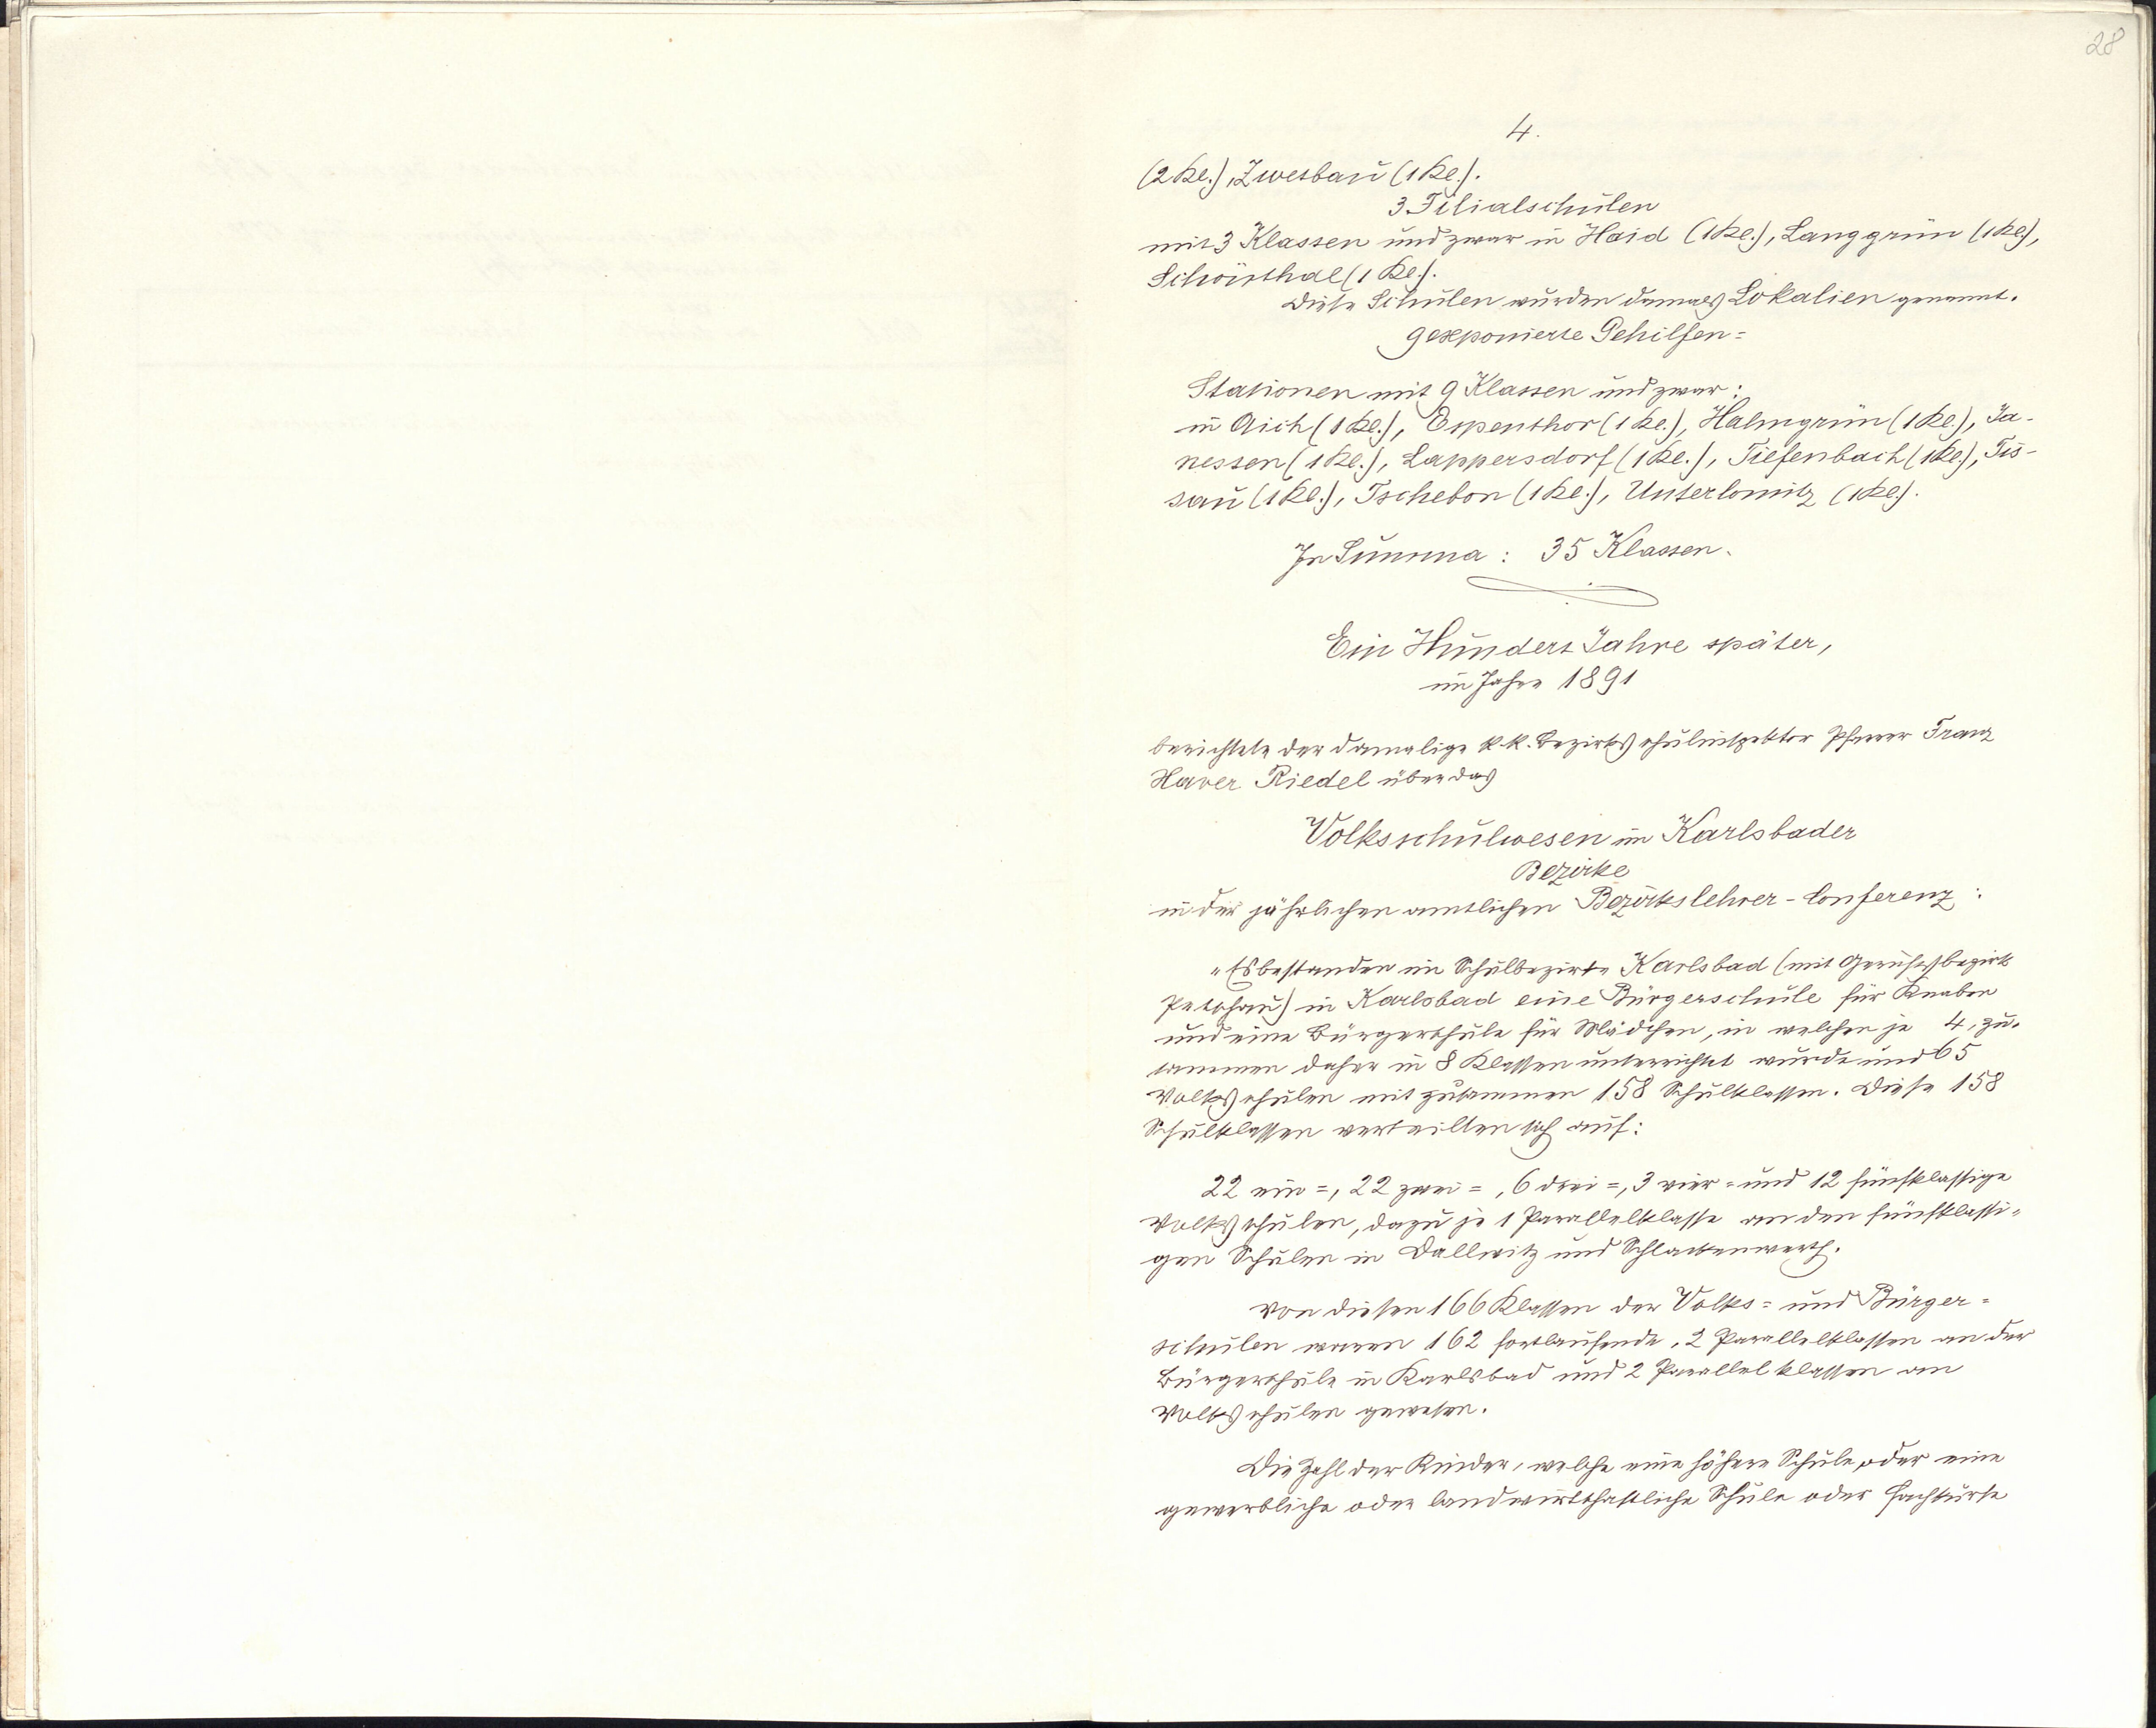 28
4.
(2 Kl.), Zwetbau (1 Kl.).
3 Filialschulen
mit 3 Klassen und zwar in Haid (1 Kl.), Langgrün (1 Kl.),
Schönthal (1 Kl.).
Diese Schulen wurden damals Lokalien genannt.
9 exponierte Gehilfen=
Stationen mit 9 Klassen und zwar:
in Aich (1 Kl.), Espenthor (1 Kl.), Halmgrün (1 Kl.), Ja-
nessen (1 Kl.), Lappersdorf (1 Kl.), Tiefenbach (1 Kl.), Tis-
sau (1 Kl.), Tschebon (1 Kl.), Unterlomitz (1 Kl.).
In Summa: 35 Klassen.
Ein Hundert Jahre später,
im Jahre 1891
berichtete der damalige k.k. Bezirksschulinspektor Pfarrer Franz
Xaver Riedel über das
Volksschulwesen im Karlsbader
Bezirke
in der jährlichen amtlichen Bezirkslehrer-Conferenz:
"Es bestanden im Schulbezirke Karlsbad (mit Gerichtsbezirk
Petschau) in Karlsbad eine Bürgerschule für Knaben
und eine Bürgerschule für Mädchen, in welchen je 4, zu-
sammen daher in 8 Klassen unterrichtet wurde und 65
Volksschulen mit zusammen 158 Schulklassen. Diese 158
Schulklassen verteilten sich auf:
22 ein=, 22 zwei=, 6 drei=, 3 vier= und 12 fünfklassige
Volksschulen, dazu je 1 Parallelklasse an den fünfklassi-
gen Schulen in Dallwitz und Schlackenwerth.
Von diesen 166 Klassen der Volks= und Bürger=
schulen waren 162 fortlaufende, 2 Parallelklassen an der
Bürgerschule in Karlsbad und 2 Parallelklassen an
Volksschulen gewesen.
Die Zahl der Kinder, welche eine höhere Schule, oder eine
gewerbliche oder landwirtschaftliche Schule oder Fachkurse